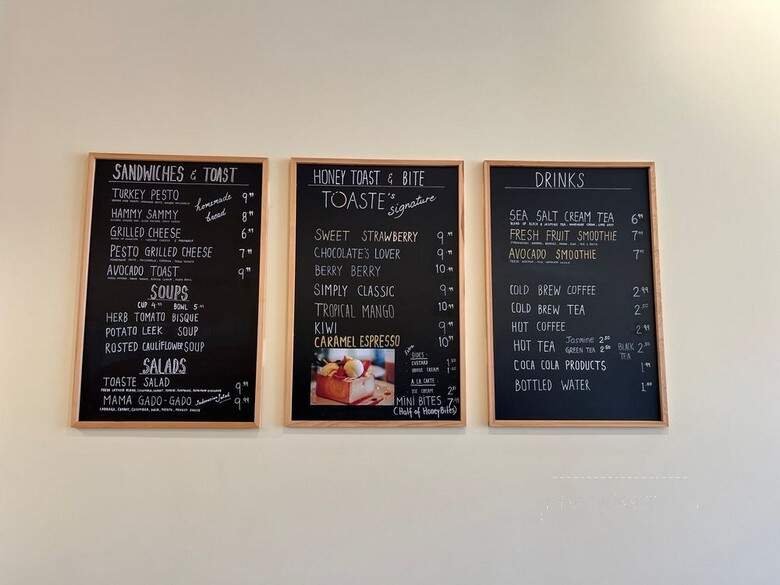 SANDWICHES & TOAST
TURKEY PESTO 9.99
homemade bread
HAMMY SAMMY 8.99
GRILLED CHEESE 6.99
PESTO GRILLED CHEESE 7.99
AVOCADO TOAST 9.99
SOUPS
CUP 4.99 BOWL 5.99
HERB TOMATO BISQUE
POTATO LEEK SOUP
ROSTED CAULIFLOWER SOUP
SALADS
TOASTE SALAD 9.99
MAMA GADO-GADO Indonesian Salad 9.99
HONEY TOAST & BITE
TOASTE's signature
SWEET STRAWBERRY 9.99
CHOCOLATE'S LOVER 9.99
BERRY BERRY 10.99
SIMPLY CLASSIC 9.99
TROPICAL MANGO 10.99
KIWI 9.99
CARAMEL ESPRESSO 10.99
SIDES-
CUSTARD
WHIPPED CREAM
A LA CARTE
ICE CREAM
MINI BITES 7.99
(Half of Honey Bites)
DRINKS
SEA SALT CREAM TEA 6.99
FRESH FRUIT SMOOTHIE 7.99
AVOCADO SMOOTHIE 7.99
COLD BREW COFFEE 2.99
COLD BREW TEA 2.50
HOT COFFEE 2.99
HOT TEA Jasmine 2.50
GREEN TEA 2.50 BLACK TEA 2.50
COCA COLA PRODUCTS 1.99
BOTTLED WATER